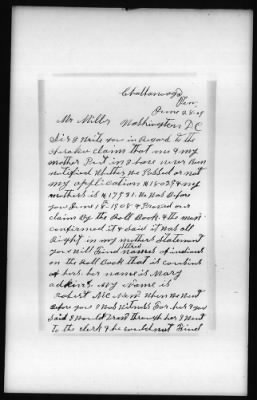 Chattanooga
Ten.
June 28 - 09
Mr Mills Washington D C
Sir I write you in Regard to the
claim that me & my
mother Put in I have never Ben
notified Whether We Passed or not
my application # 18029 & my
mothers is # 17991. We Was Before
you June 18. 1908 & Proved our
claim By the Roll Book & the man
confirmed it & said it Was all
Right in my mothers Statement
you Will Find names of indians
on the Roll Book that is
of hers. her name is Mary
adkins. My Name is
Robert When We Went
Before you I Was Witness For her & you
Said I Would Draw through her I Went
To the clerk & he could not Find